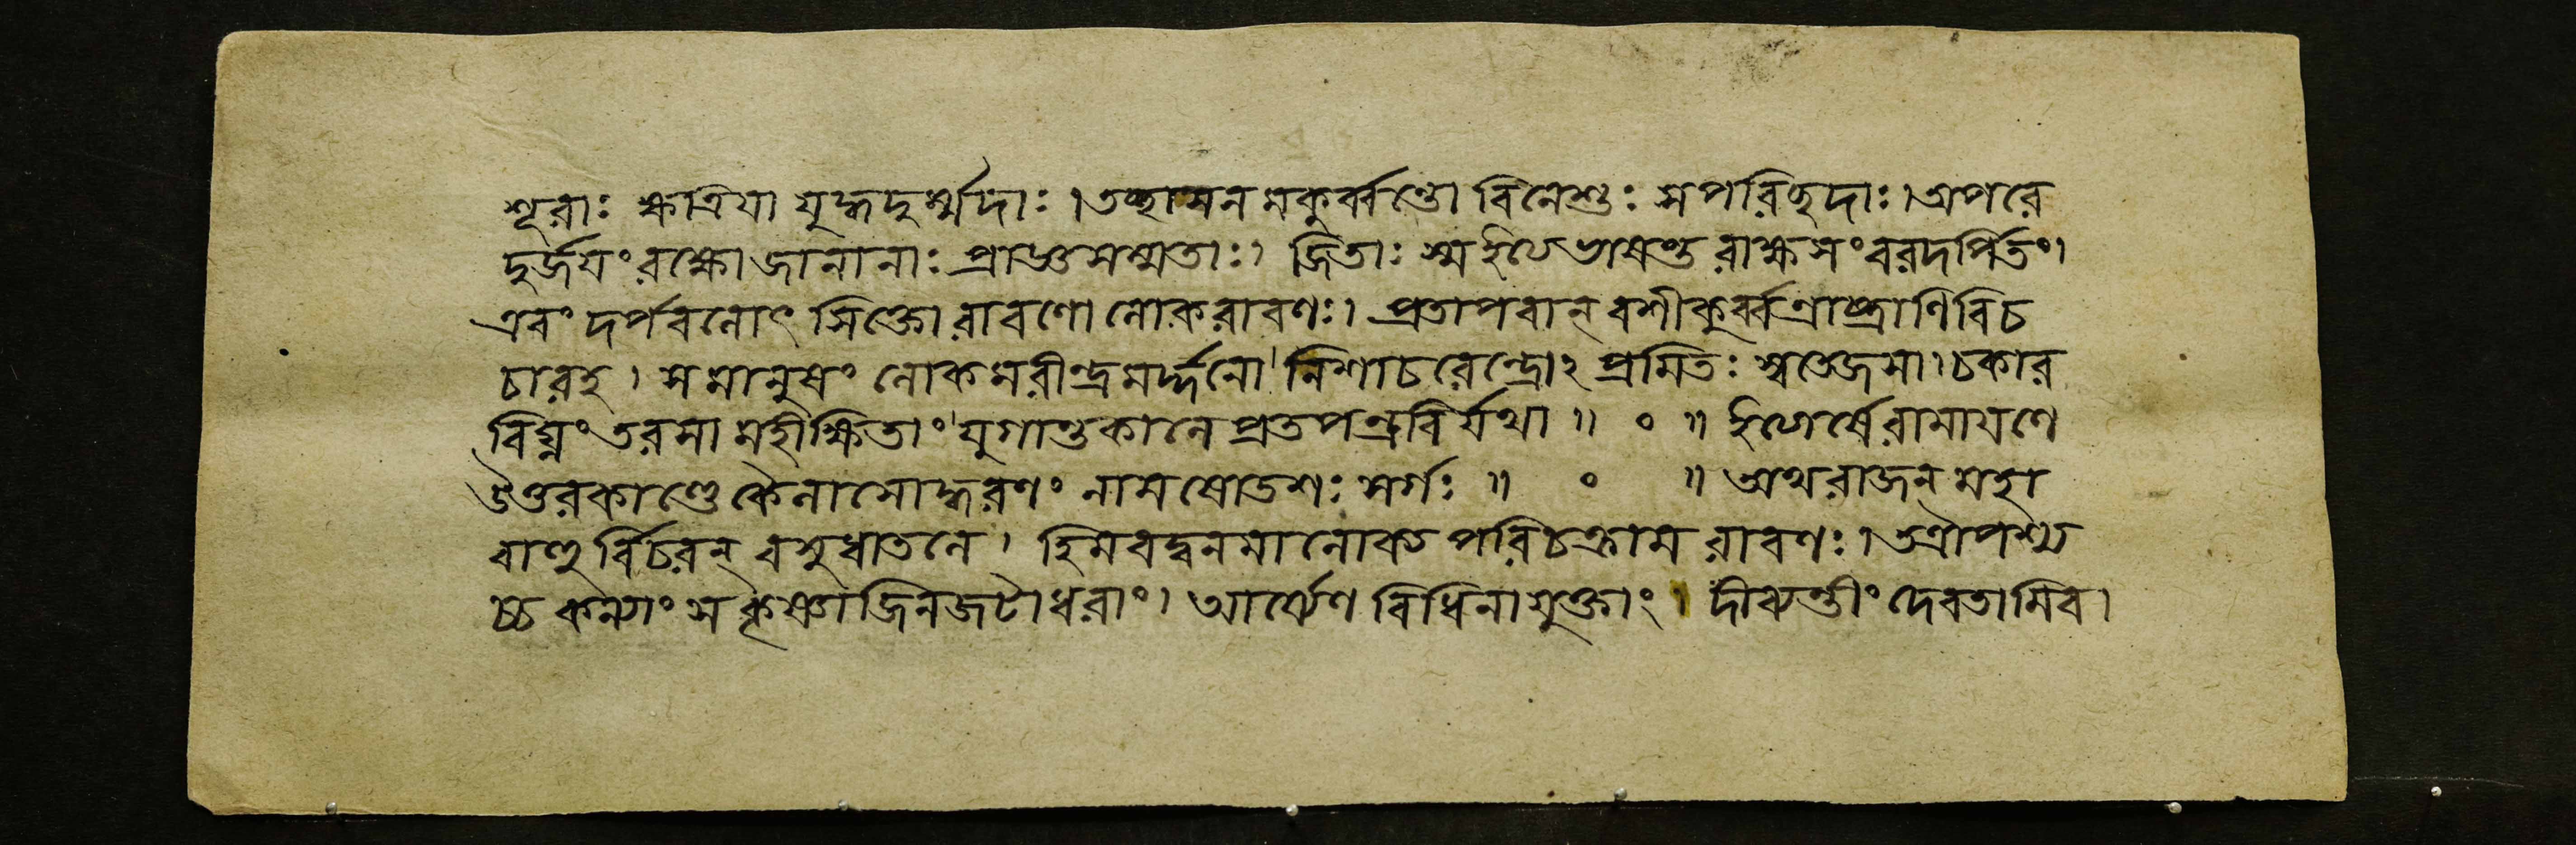 শূরাঃ ক্ষত্রিয়া যুদ্ধদুর্ম্মদাঃ । তচ্ছাসনমকুর্ব্বন্তো বিনেশুঃ সপরিছদাঃ । অপরে
দুর্জয়ং রক্ষো জানানাঃ প্রাজ্ঞসম্মতাঃ । জিতাঃ স্ম ইত্যভাষন্ত রাক্ষসং বরদর্পিতং ।
এবং দর্পবলোৎসিক্তো রাবণো লোকরাবণঃ । প্রতাপবান্ বশীকুর্ব্বন্রাষ্ট্রাণি বিচ
চার হ । সমানুষং লোকমরীন্দ্রমর্দ্দনো । নিশাচরেন্দ্রোঽপ্রমিতঃ স্বতেজসা । চকার
বিঘ্নং তরসা মহীক্ষিতাং । যুগান্তকালে প্রতপন্রবির্যথা ॥ ০ ॥ ইত্যার্ষে রামায়ণে
উত্তরকাণ্ডে কৈলাসোদ্ধরণং নাম ষোড়শঃ সর্গঃ ॥ ০ ॥ অথ রাজন্ মহা
বাহু র্বিচরন্ বসুধাতলে । হিমবদ্বনমালোক্য পরিচক্রাম রাবণঃ । তত্রাপশ্য
চ্চ কন্যাং স কৃষ্ণাজিনজটাধরাং । আর্ষেণ বিধিনা যুক্তাং । দীব্যন্তীং দেবতামিব ।